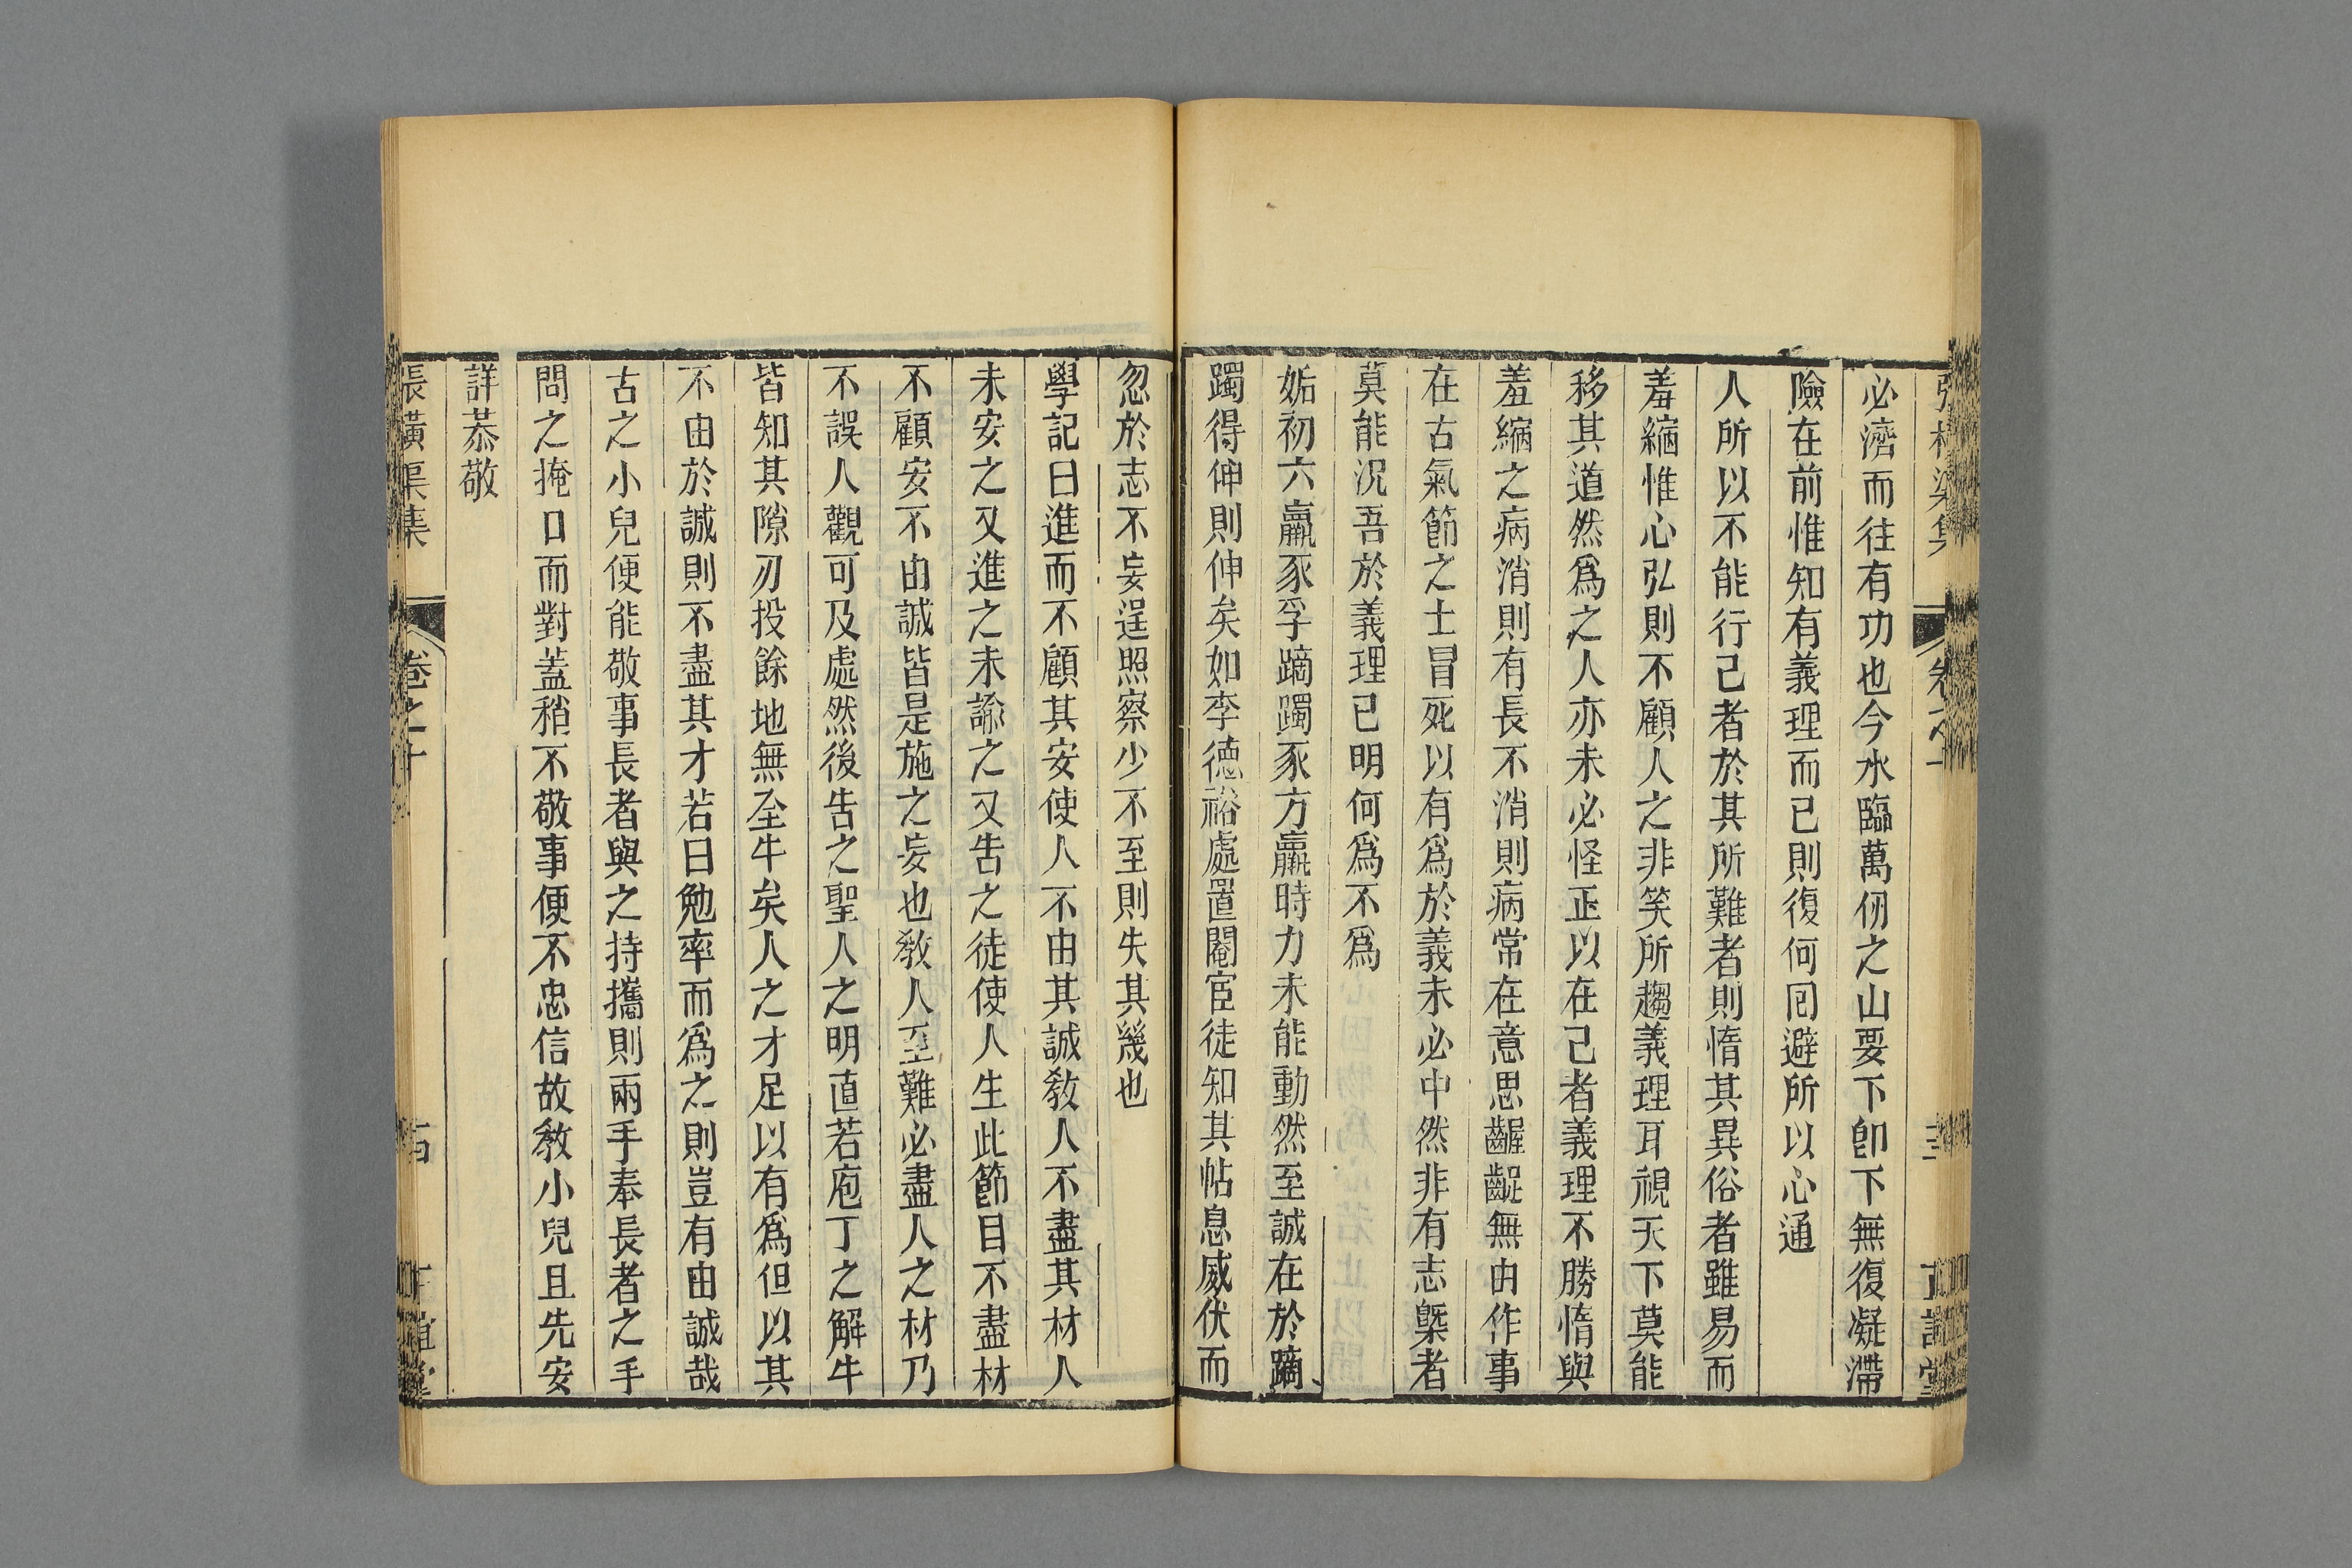 必濟而往有功也今水臨萬仞之山要下卽下無復凝滯
險在前惟知有義理而已則復何囘避所以心通
人所以不能行己者於其所難者則惰其異俗者雖易而
羞縮惟心弘則不顧人之非笑所趨義理耳視天下莫能
移其道然爲之人亦未必怪正以在己者義理不勝惰與
羞縮之病消則有長不消則病常在意思齷齪無由作事
在古氣節之士冒死以有爲於義未必中然非有志槩者
莫能况吾於義理已明何爲不爲
姤初六羸豕孚蹢躅豕方羸時力未能動然至誠在於蹢
躅得伸則伸矣如李德裕處置閹宦徒知其帖息威伏而
忽於志不妄逞照察少不至則失其幾也
學記曰進而不顧其安使人不由其誠敎人不盡其材人
未安之又進之未諭之又告之徒使人生此節目不盡材
不顧安不由誠皆是施之妄也敎人至難必盡人之材乃
不誤人觀可及處然後告之聖人之明直若庖丁之解牛
皆知其隙刃投餘地無全牛矣人之才足以有爲但以其
不由於誠則不盡其才若曰勉率而爲之則豈有由誠哉
古之小兒便能敬事長者與之持攜則兩手奉長者之手
問之掩口而對蓋稍不敬事便不忠信故敎小兒且先安
詳恭敬
張橫渠集 卷之十